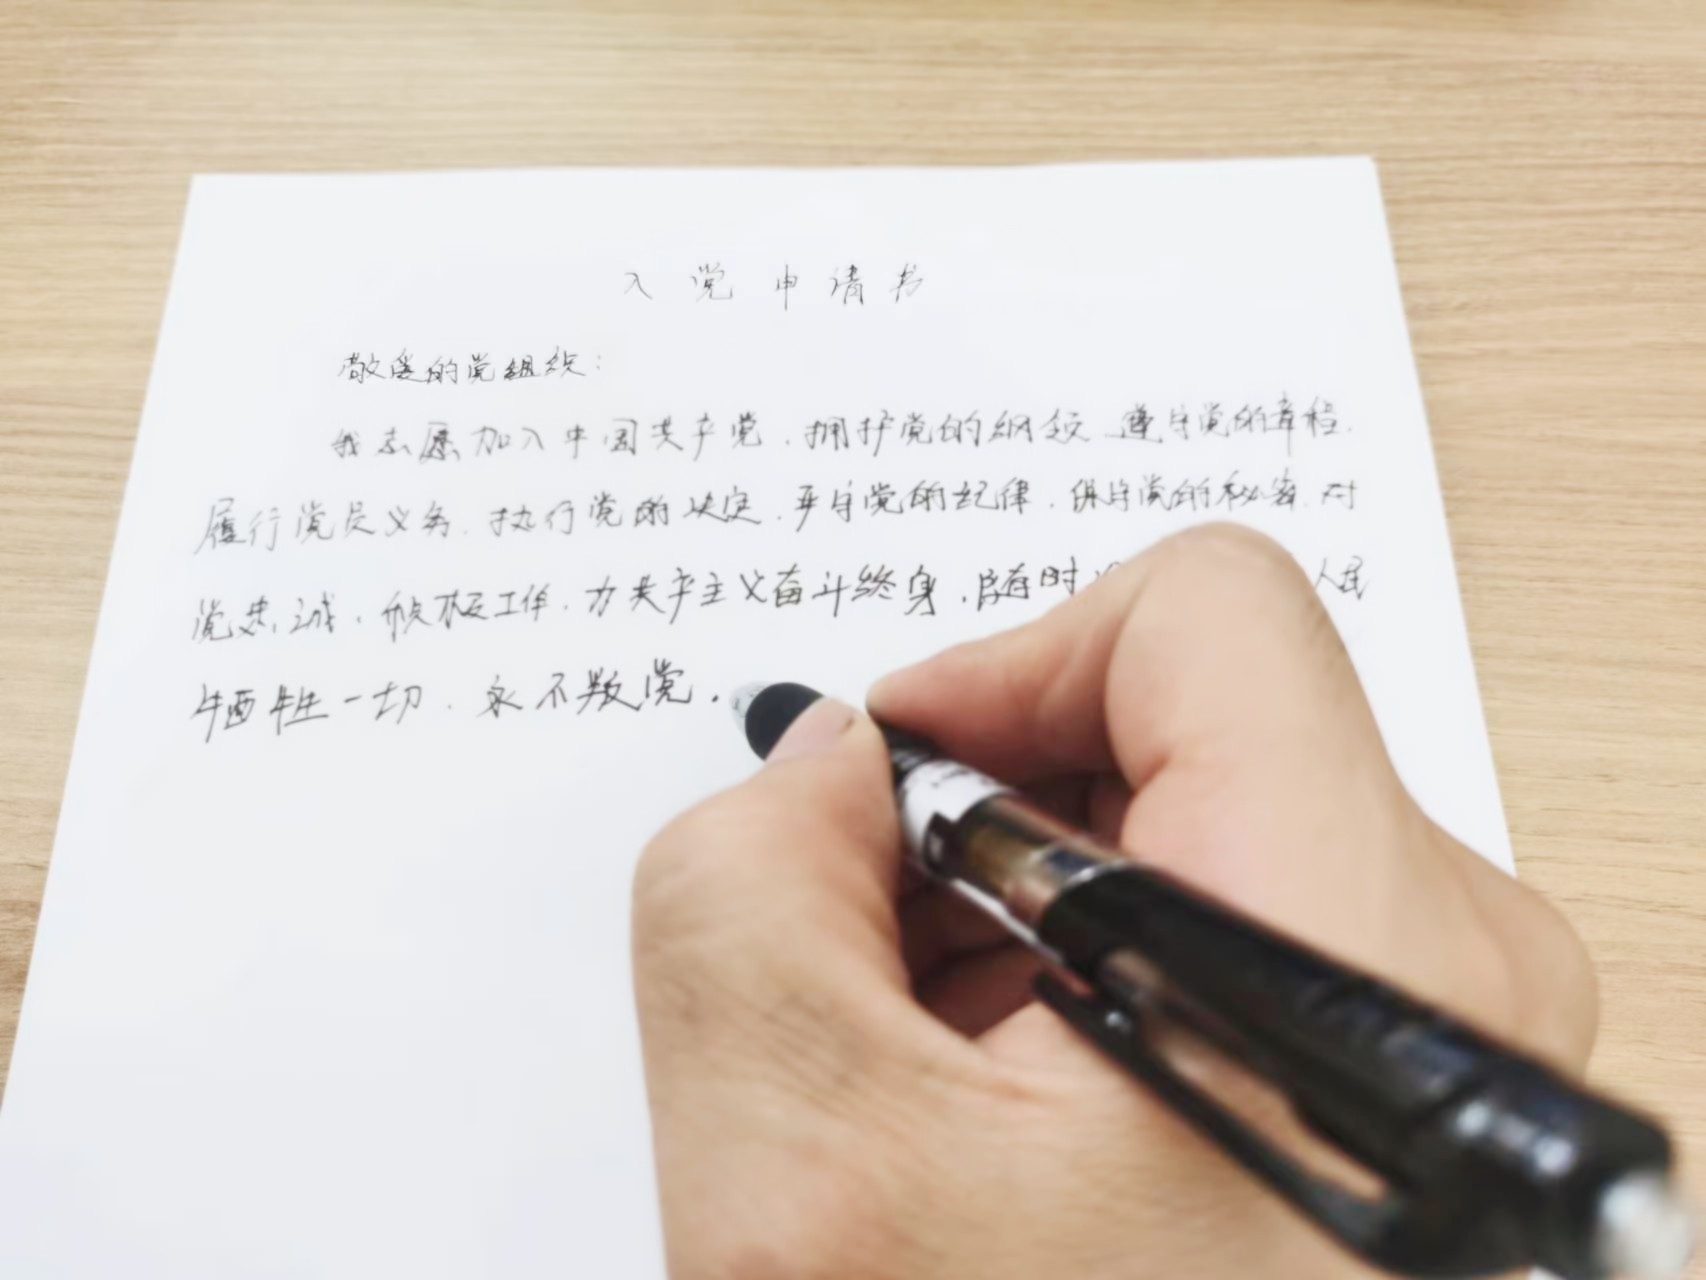 入党申请书
敬爱的党组织：
我志愿加入中国共产党，拥护党的纲领，遵守党的章程，
履行党员义务，执行党的决定，严守党的纪律，保守党的秘密，对
党忠诚，积极工作，为共产主义奋斗终身，随时 人民
牺牲一切，永不叛党。